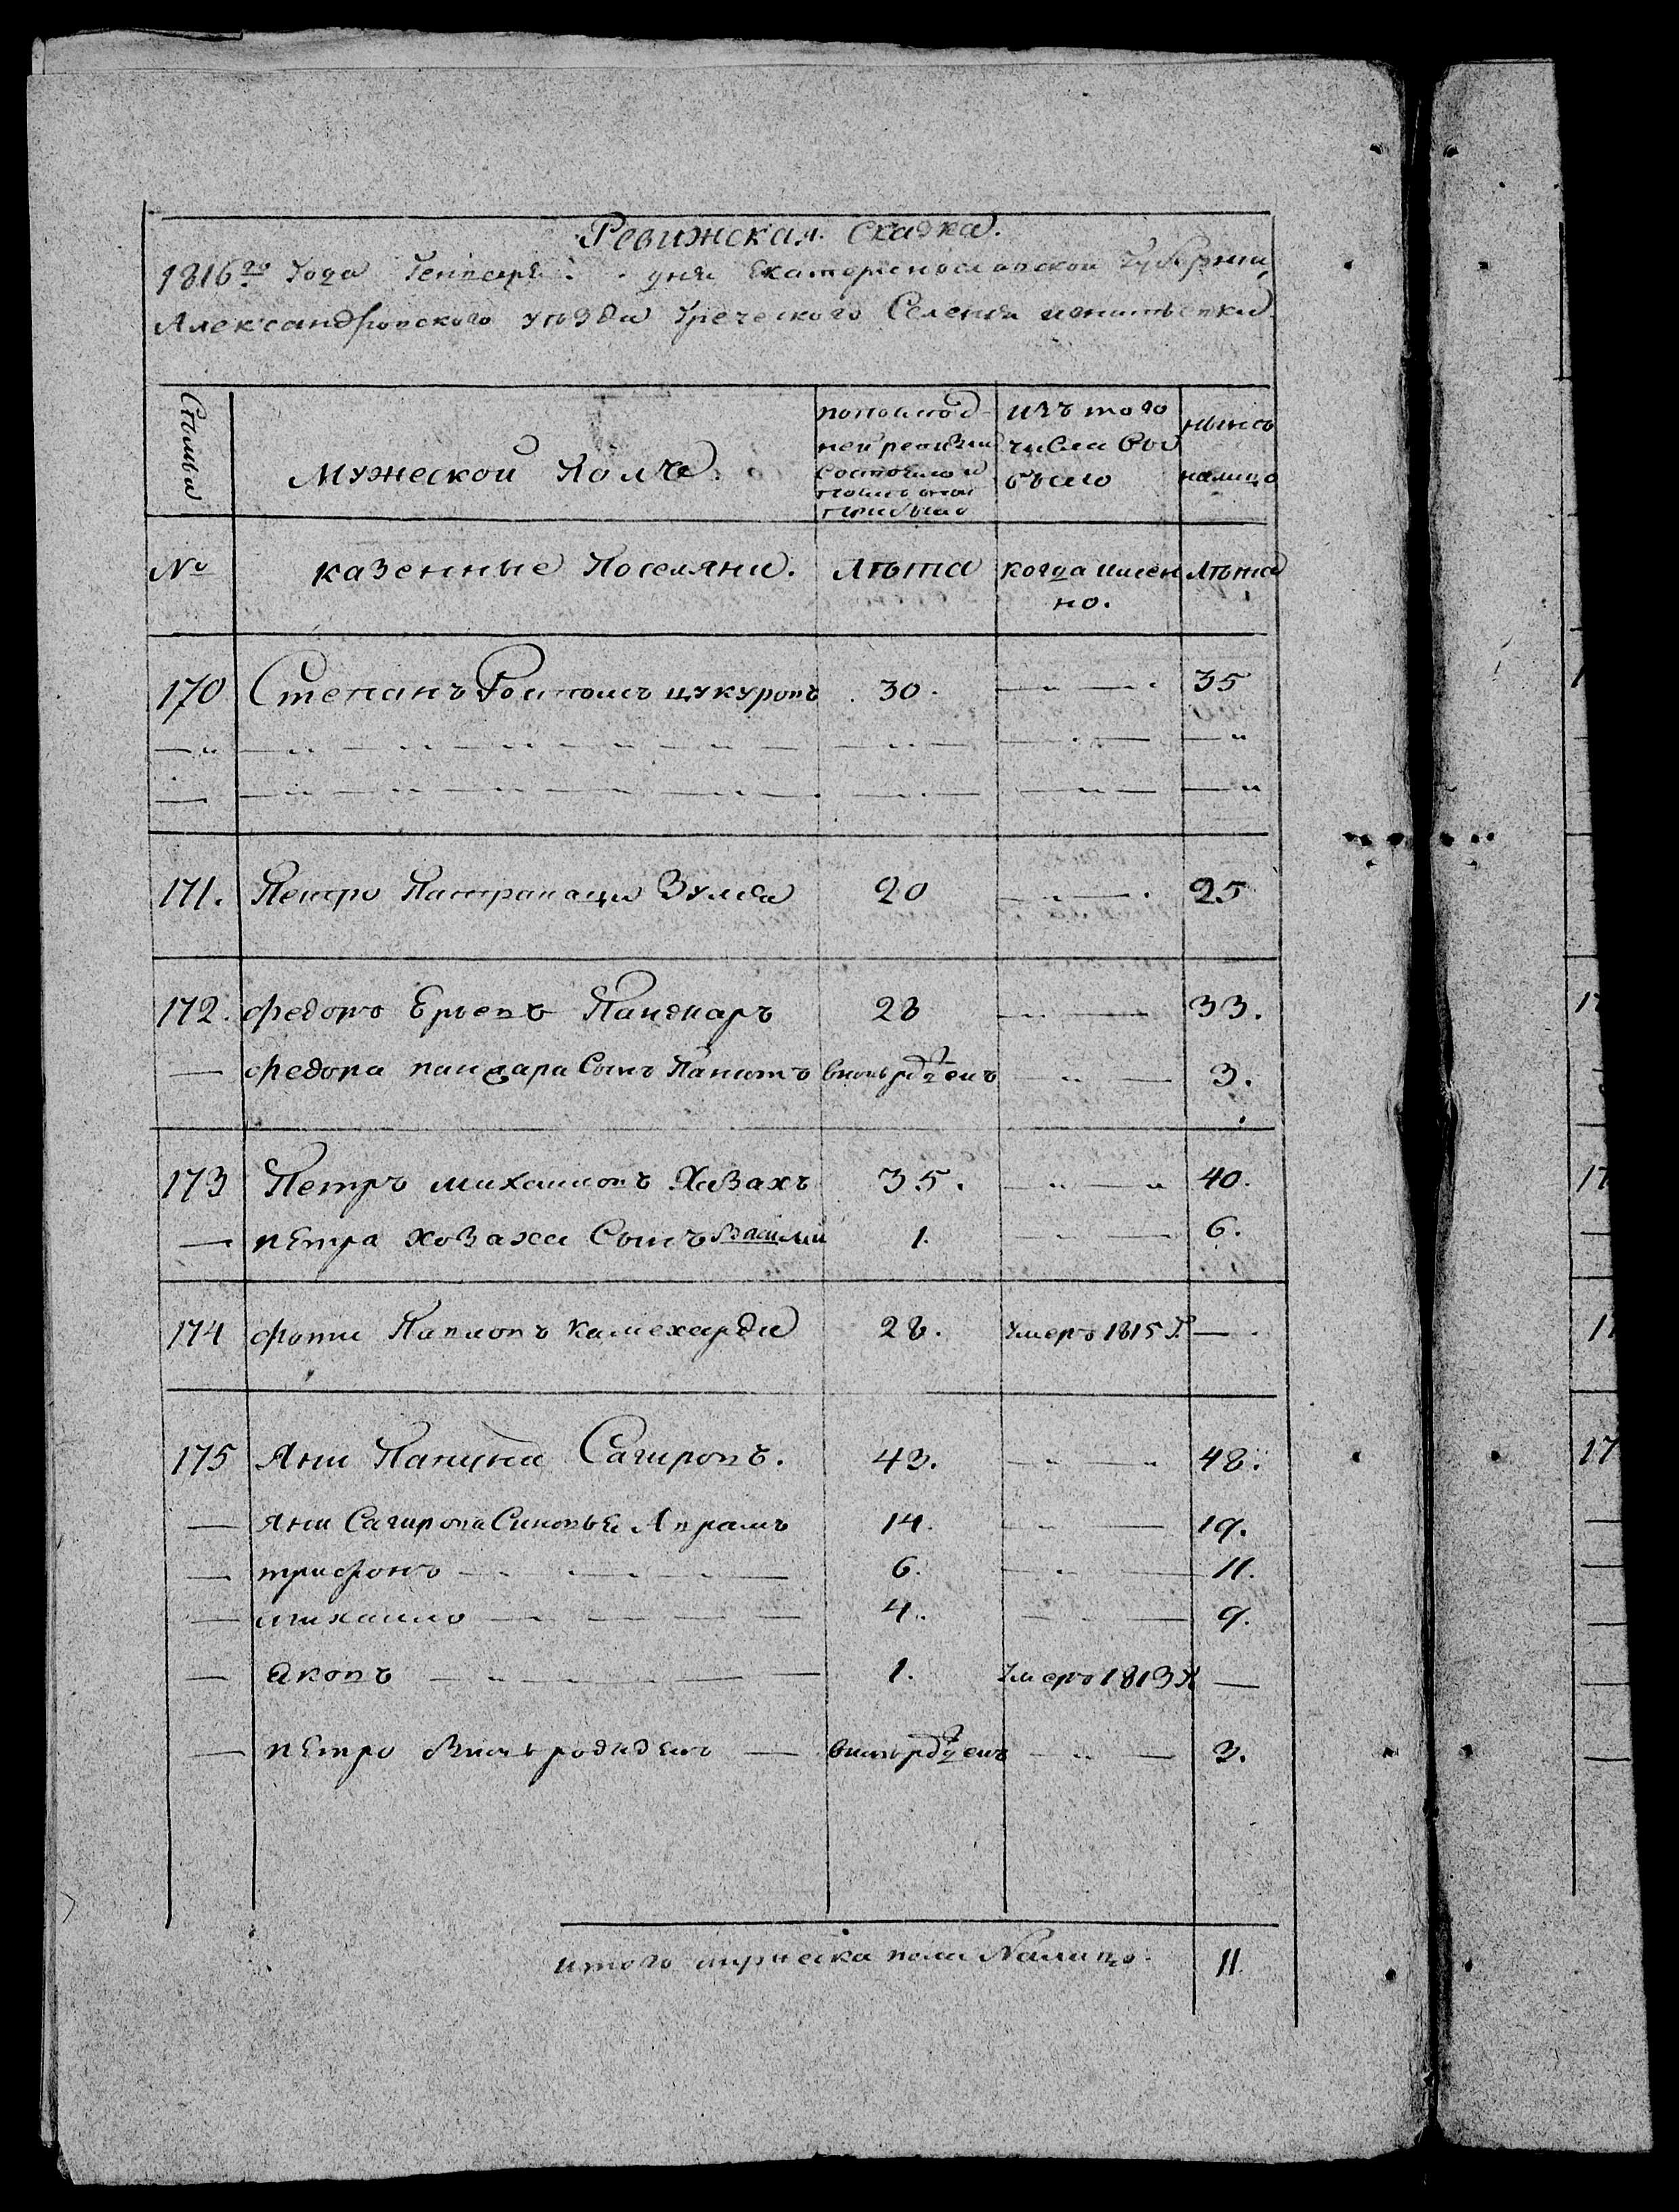 Ревижская Сказка.
1816го Года Генваря дня Екатеринославской Губернии,
Александровского уъзда Греческого Селения
Мужеской Полъ.
по послѣд-
ней ревизіи
состояло и
послѣ оной
прибыло
изъ того
числа вы
было
нынѣ
налицо
№
казенные Поселяни.
Лѣта
когда имен
но.
Лѣта
170 Степанъ цукуровъ 30. 35
171. Петро Зулса 20 25
172. федоръ Пандчаръ 28 33.
федора сынъ вновь рожденъ 3.
173 Петръ михаиловъ Хазахъ 35. 40.
пЕтра хозаха Сынъ Василии 1. 6.
174 фоти Павловъ 28. Умеръ 1815 Г.
175 Яни Сагировъ. 43. 48.
Яни Сагирова Синовья Аврамъ 14. 19.
трифонъ 6. 11.
михаило 4. 9.
Яковъ 1. Умеръ 1813 Г
пЕтро вновь рожденъ вновь рожденъ 3.
итого мужеска пола Налицо. 11.